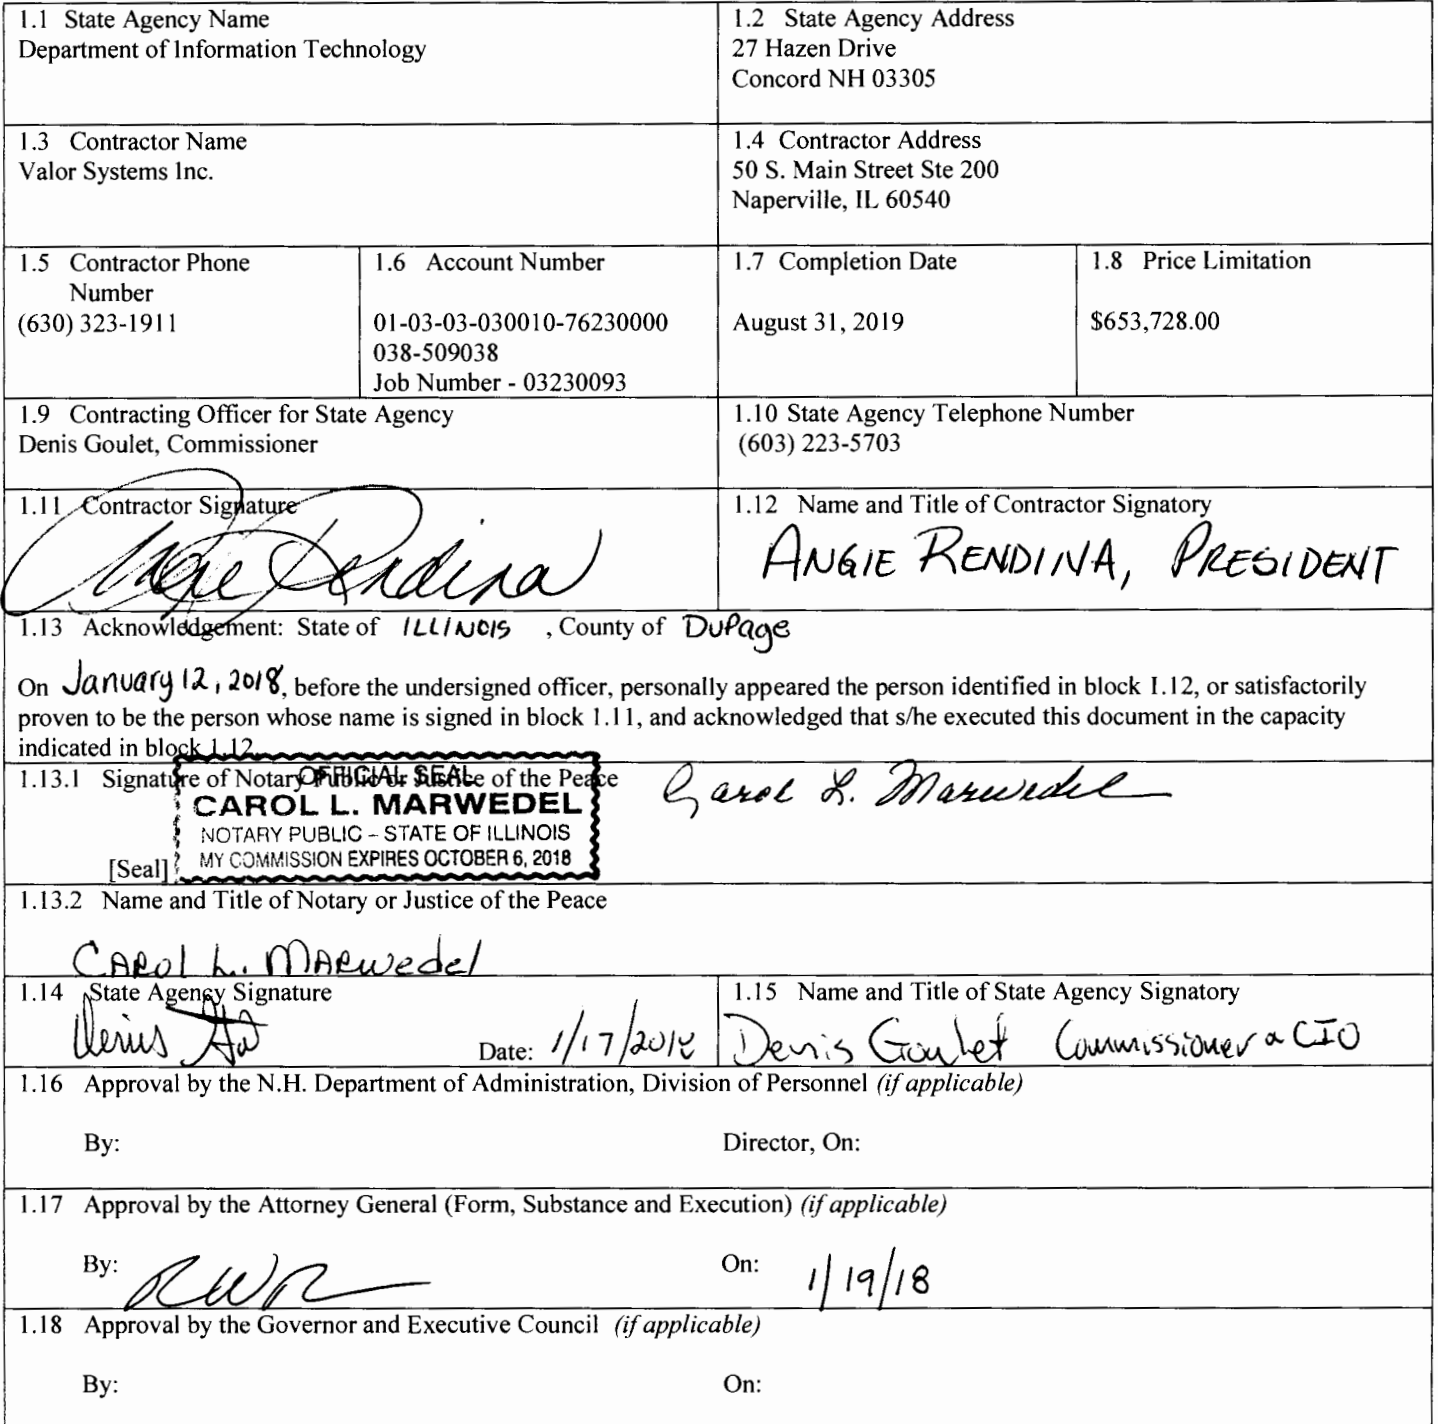 1.1 State Agency Name
Department of Information Technology
1.2 State Agency Address
27 Hazen Drive
Concord NH 03305
1.3 Contractor Name
Valor Systems Inc.
1.4 Contractor Address
50 S. Main Street Ste 200
Naperville, IL 60540
1.5 Contractor Phone
Number
(630) 323-1911
1.6 Account Number
01-03-03-030010-76230000
038-509038
Job Number - 03230093
1.7 Completion Date
August 31, 2019
1.8 Price Limitation
$653,728.00
1.9 Contracting Officer for State Agency
Denis Goulet, Commissioner
1.10 State Agency Telephone Number
(603) 223-5703
1.11 Contractor Signature
Angie Rendina
1.12 Name and Title of Contractor Signatory
ANGIE RENDINA, PRESIDENT
1.13 Acknowledgement: State of ILLINOIS , County of DuPage
On January 12, 2018, before the undersigned officer, personally appeared the person identified in block 1.12, or satisfactorily
proven to be the person whose name is signed in block 1.11, and acknowledged that s/he executed this document in the capacity
indicated in block 1.12.
1.13.1 Signature of Notary Public or Justice of the Peace
Carol L. Marwedel
OFFICIAL SEAL
CAROL L. MARWEDEL
NOTARY PUBLIC – STATE OF ILLINOIS
MY COMMISSION EXPIRES OCTOBER 6, 2018
[Seal]
1.13.2 Name and Title of Notary or Justice of the Peace
CAROL L. MARWEDEL
1.14 State Agency Signature
Denis
Date: 1/17/2018
1.15 Name and Title of State Agency Signatory
Denis Goulet Commissioner & CIO
1.16 Approval by the N.H. Department of Administration, Division of Personnel (if applicable)
By: Director, On:
1.17 Approval by the Attorney General (Form, Substance and Execution) (if applicable)
By: On: 1/19/18
1.18 Approval by the Governor and Executive Council (if applicable)
By: On: